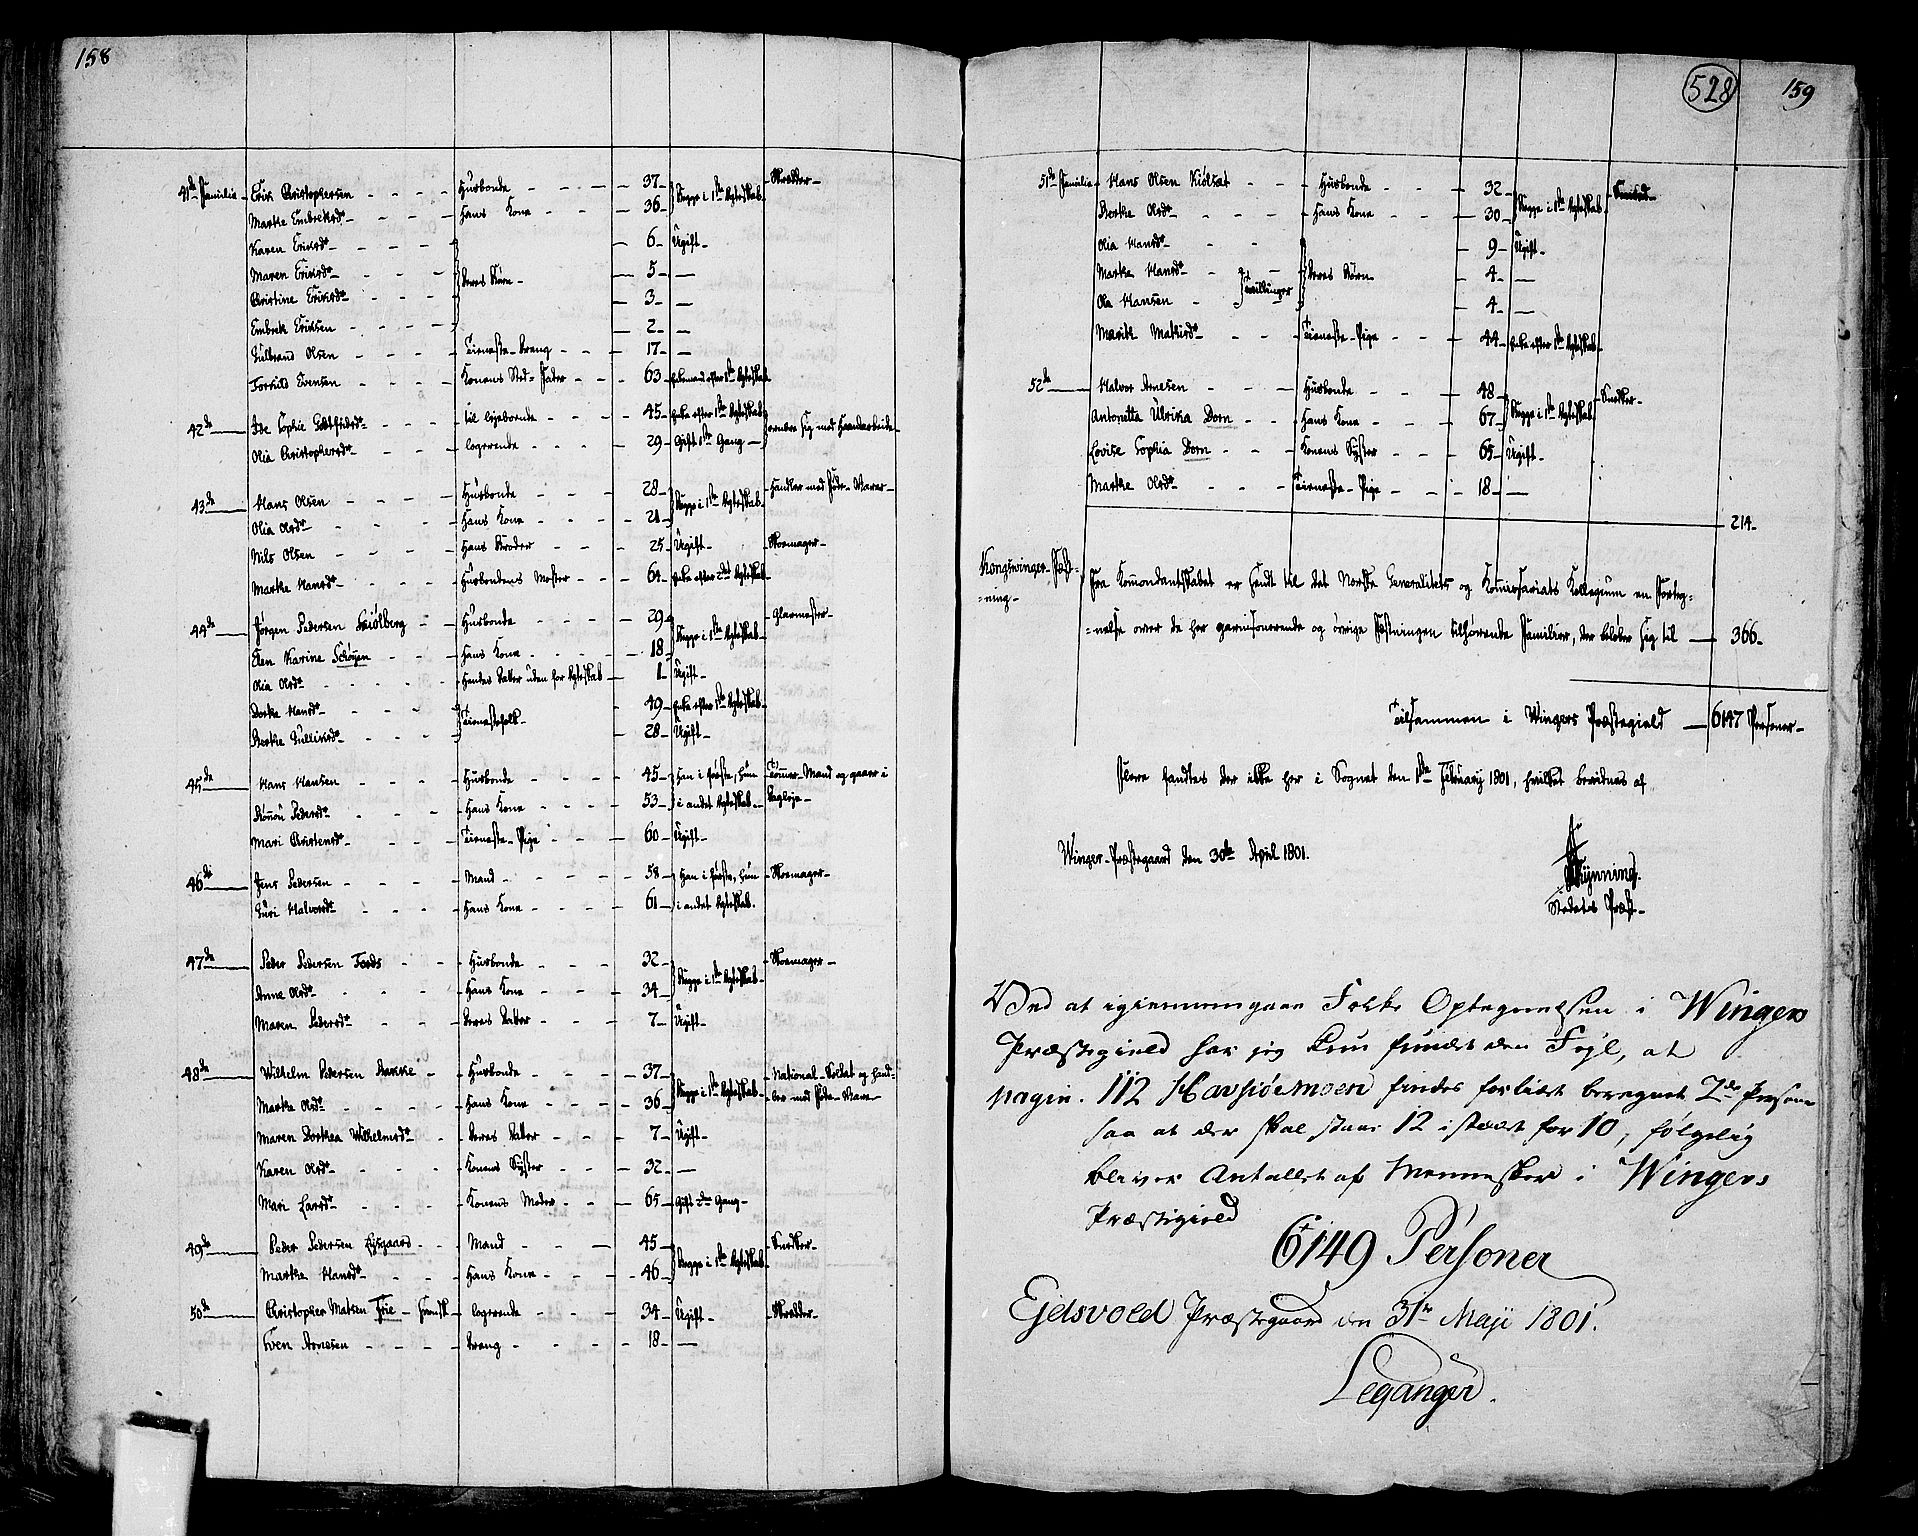 158
41de Familie Erik Christophersen Husbonde 37 Begge i 1ste Ægteskab Skrædder
Marthe Embretsdr Hans Kone 36
Karen Eriksdr Deres Børn 6 Ugift
Maren Eriksdr 5
Christine Eriksdr 3
Embret Eriksen 2
Gulbrand Olsen Tieneste-Dreng 17
Torkild Evensen Konens Sted-Fader 63 Enkemand efter 1ste Ægteskab
42de Ide Sophie til Leje boende 45 Enke efter 1ste Ægteskab ernære sig med Haandarbeide
Olia Christophersdr logerende 29 Gift 1ste Gang
43de Hans Olsen Husbonde 28 Begge i 1ste Ægteskab Handler med Føde-Varer
Olia Olsdr Hans Kone 21
Nils Olsen Hans Broder 25 Ugift Skoemager
Marthe Hansdr Husbondens Moster 64 Enke efter 2det Ægteskab
44de Jørgen Pedersen Husbonde 29 Begge i 1ste Ægteskab Glarmester
Elen Karine Schøyen Hans Kone 18
Olia Olsdr Hendes Datter uden for Ægteskab 1 Ugift
Dorthe Hansdr Tienestefolk 49 Enke efter 1ste Ægteskab
Berthe Gulliksdr 28 Ugift
45de Hans Hansen Husbonde 45 Han i første, hun Tømmer-Mand og gaaer i
Pedersdr Hans Kone 53 i andet Ægteskab Dagleje
Mari Christensdr Tieneste-Pige 60 Ugift
46de Jens Pedersen Mand 58 Han i første, hun Skoemager
Guri Halvorsdr Hans Kone 61 i andet Ægteskab.
47de Peder Pedersen Husbonde 32 Begge i 1ste Ægteskab Skoemager
Anne Olsdr Hans Kone 34
Maren Pedersdr Deres Datter 7 Ugift
48de Wilhelm Pedersen Bakke Husbonde 37 Begge i 1ste Ægteskab National-Soldat og hand-
Marthe Olsdr Hans Kone 36 ler med Føde-Vare
Maren Dorthea Wilhelmsdr Deres Datter 7 Ugift
Karen Olsdr Konens Syster 32
Mari Larsdr Konens Moder 65 Gift 2den Gang
49de Peder Pedersen Lysgaard Mand 45 Begge i 1ste Ægteskab Snedker
Marthe Hansdr Hans Kone 46
50de Christopher Matsen logerende 34 Ugift Skrædder
Sven Arnesen Dreng 18
528 159
51de Familie Hans Olsen Kiølsæt Husbonde 32 Begge i 1ste Ægteskab
Berthe Olsdr Hans Kone 30
Olia Hansdr Deres Børn 9 Ugift
Marthe Hansdr Tvillinger 4
Ole Hansen 4
Marith Mathisdr Tieneste-Pige 44 Enke efter 1ste Ægteskab
52de Halvor Arnesen Husbonde 48 Begge i 1ste Ægteskab Snedker
Antonetta Ulrika Dorn Hans Kone 67
Lovise Sophia Dorn Konens Syster 65 Ugift
Marthe Olsdr Tieneste-Pige 18
214
Kongswinger Fæst-
ning Fra Kommendantskabet er sendt til det Norske Generalitets og Komissariats Kollegium en Forteg-
nelse over de her garnisonerende og øvrige Fæstningen tilhørende Familier, der beløber sig til 366
Tilsammen i Wingers Præstegield 6147 Personer
Flere fandtes der ikke her i Sognet den 1ste Februarij 1801, hvilket bevidnes af
Winger-Præstegaard den 30te April 1801.
Stedets Præst
Ved at igiennemgaae Folke Optegnelsen i Wingers
Præstegield har jeg kun fundet den Fejl, at
pagin. 112 findes forlidet beregnet 2de Persone
saa at der skal staae 12 istædet for 10, følgelig
bliver Antallet af Mennesker i Wingers
Præstegield
6149 Personer
Ejdsvold Præstegaard den 31te Maji 1801.
Leganger.